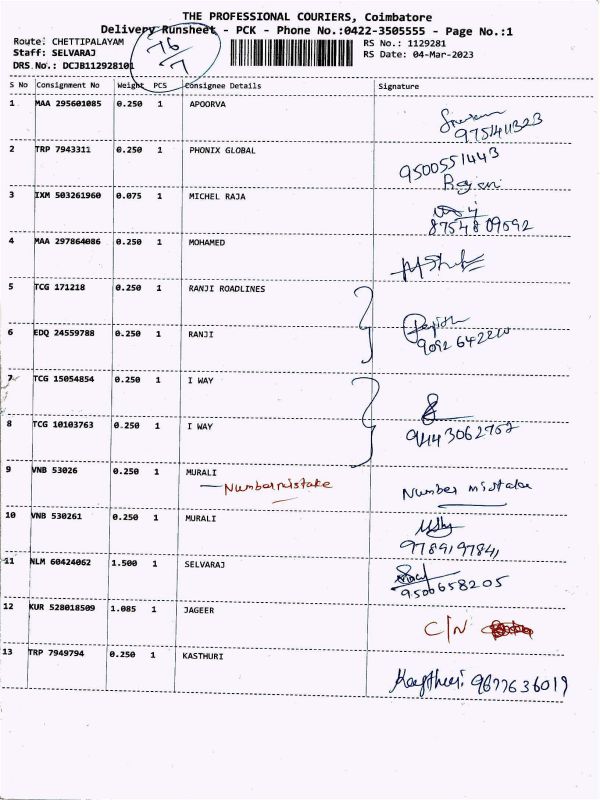 THE PROFESSIONAL COURIERS, Coimbatore
Delivery Runsheet - PCK - Phone No.:0422-3505555 - Page No.:1
Route: CHETTIPALAYAM
Staff: SELVARAJ
DRS No.: DCJB112928101
76/7
RS No.: 1129281
RS Date: 04-Mar-2023
S No Consignment No Weight PCS Consignee Details Signature
1 MAA 295601085 0.250 1 APOORVA
2 TRP 7943311 0.250 1 PHONIX GLOBAL
9500551443
3 IXM 503261960 0.075 1 MICHEL RAJA
8754809592
4 MAA 297864086 0.250 1 MOHAMED
5 TCG 171218 0.250 1 RANJI ROADLINES
6 EDQ 24559788 0.250 1 RANJI
7 TCG 15054854 0.250 1 I WAY
8 TCG 10103763 0.250 1 I WAY
9443062752
9 VNB 53026 0.250 1 MURALI
Number mistake Number mistake
10 VNB 530261 0.250 1 MURALI
11 NLM 60424062 1.500 1 SELVARAJ
9500658205
12 KUR 528018509 1.085 1 JAGEER
C/N
13 TRP 7949794 0.250 1 KASTHURI
Kasthuri 9677636019